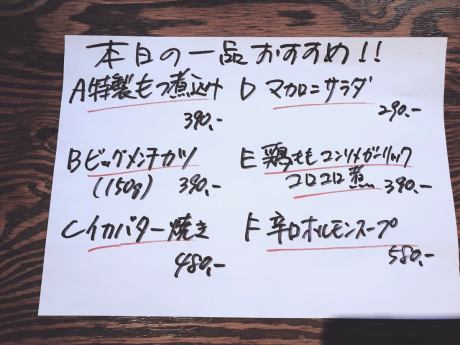 本日の一品おすすめ!!
A特製もつ煮込み
390.-
Bビッグメンチカツ
(150g) 390.-
Cイカバター焼き
480.-
D マカロニサラダ
290.-
E 鶏ももコンソメガーリック
コロコロ煮 390.-
F 辛口ホルモンスープ
580.-